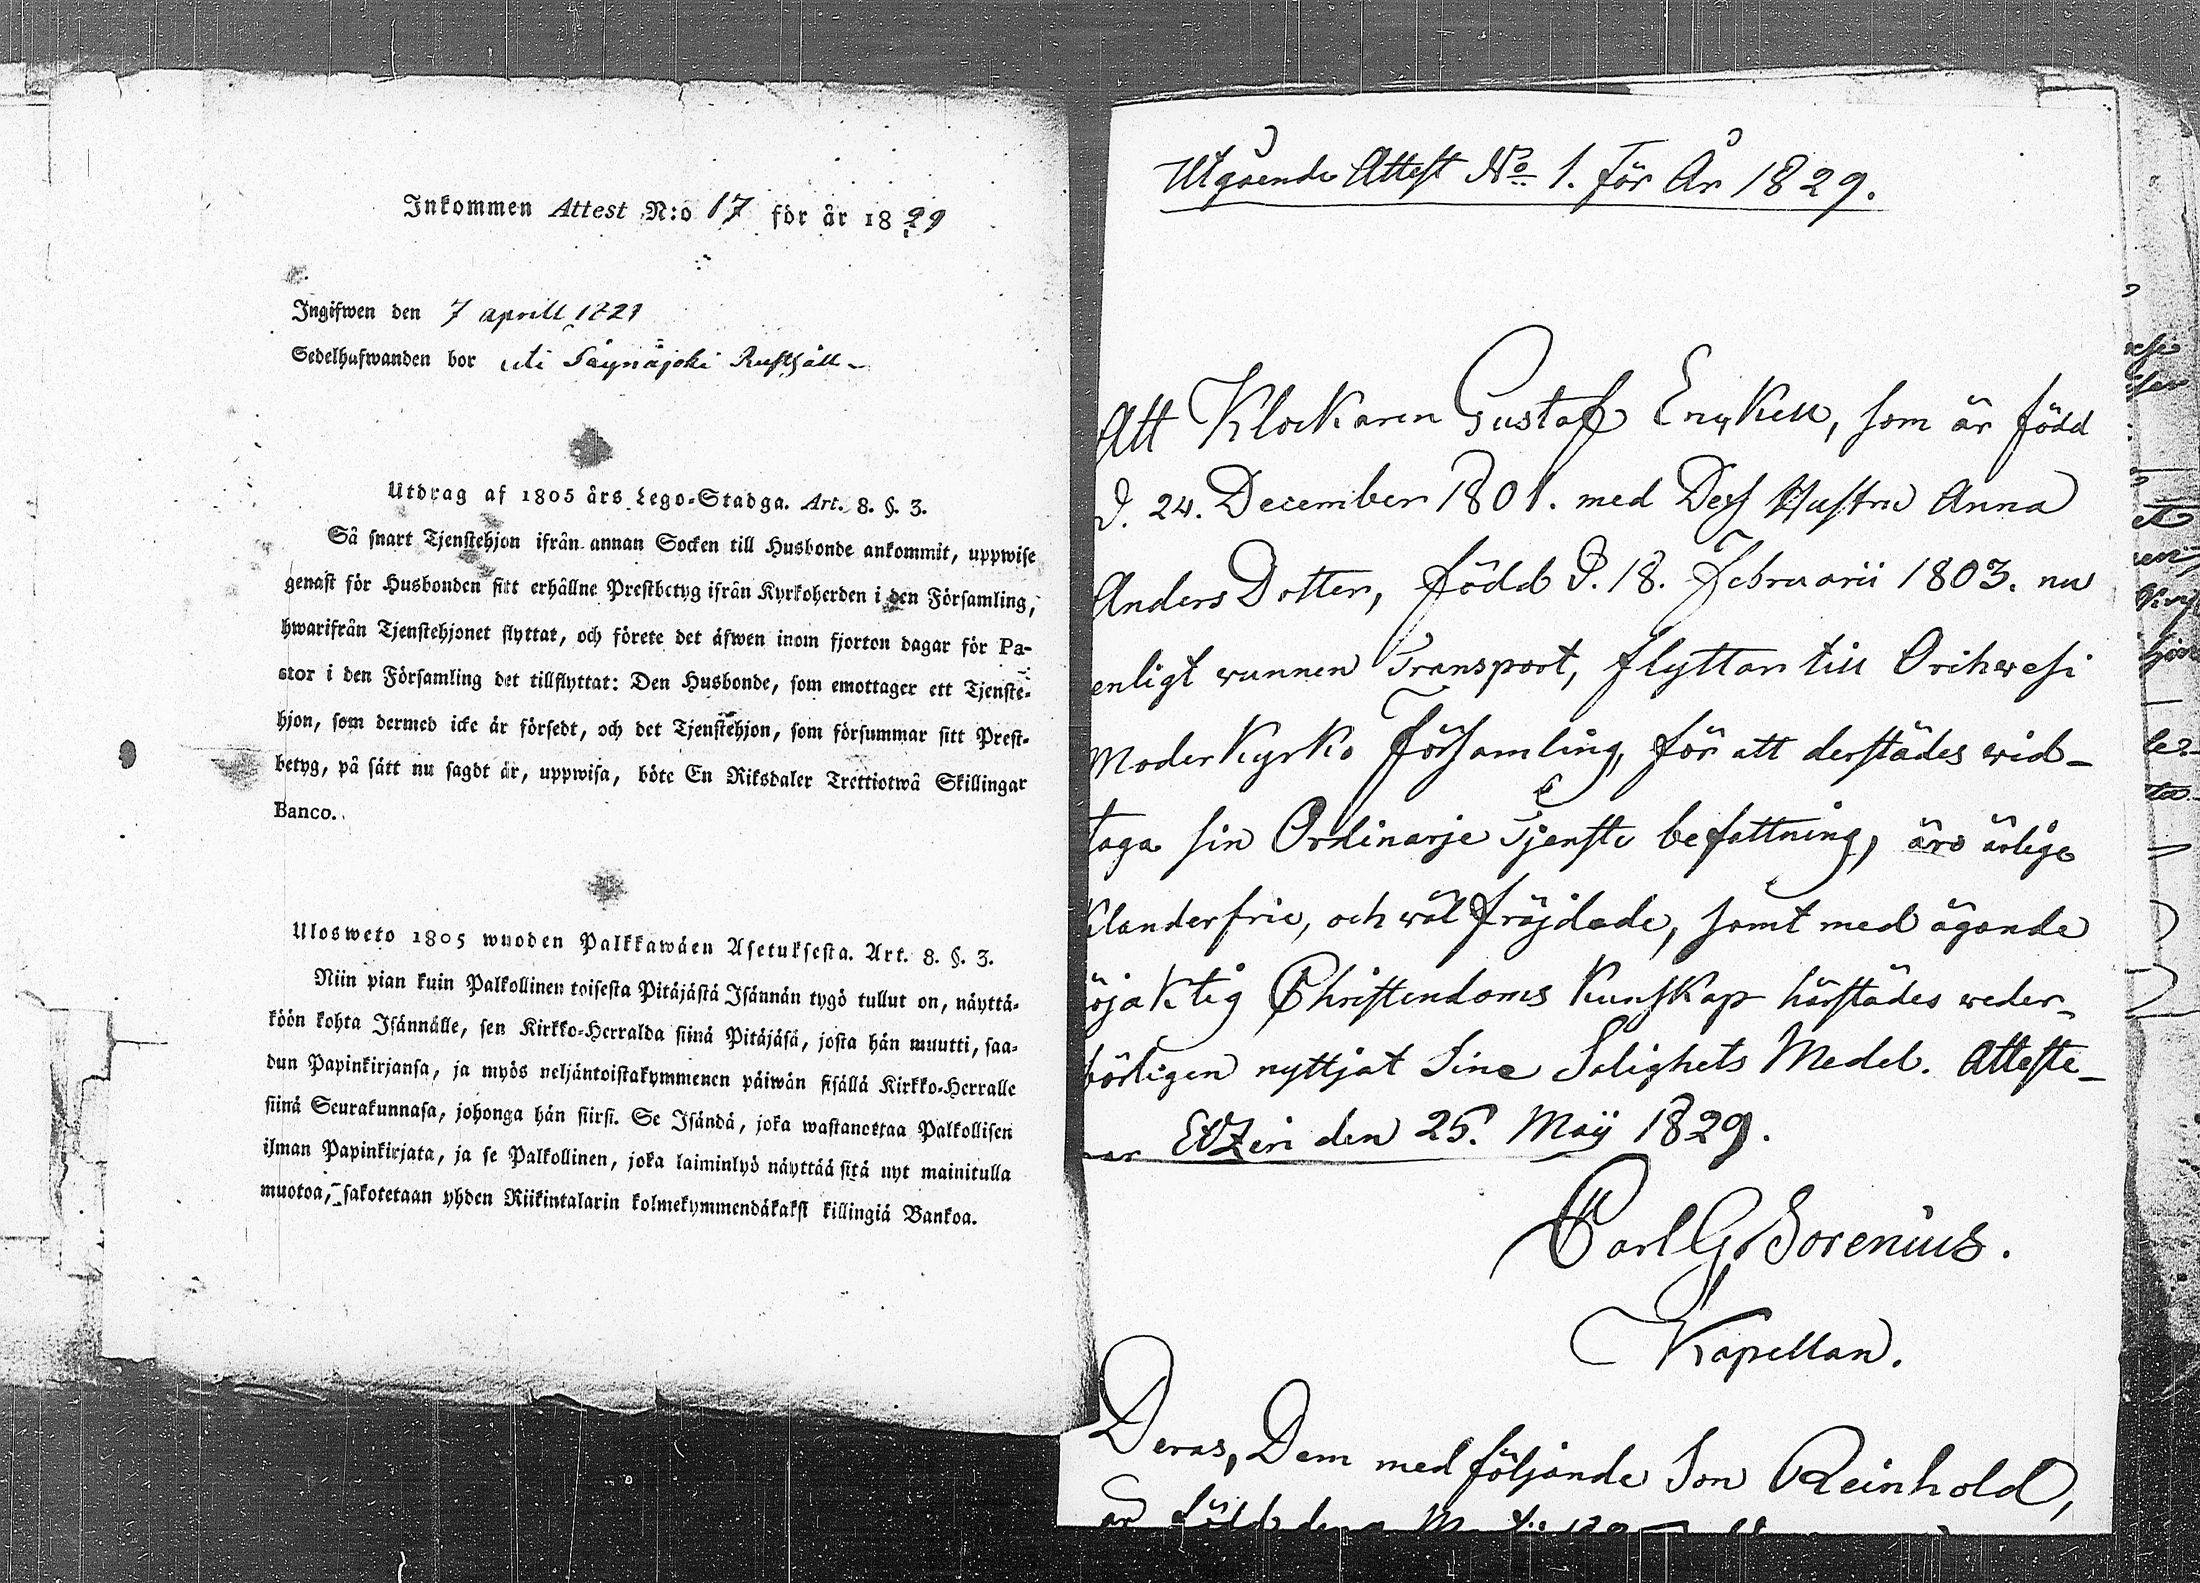 Inkommen Attest N:o 17 för år 1829
Ingifwen den 7 aprill 1829
Sedelhafwanden bor uti Säynäjoki Rusthåll
Utdrag af 1805 års Lego-Stadga. Art. 8. §. 3.
Så snart Tjenstehjon ifrån annan Socken till Husbonde ankommit, uppwise
genast för Husbonden sitt erhållne Prestbetyg ifrån Kyrkoherden i den Församling,
hwarifrån Tjenstehjonet flyttat, och förete det äfwen inom fjorton dagar för Pa-
stor i den Församling det tillflyttat: Den Husbonde, som emottager ett Tjenste-
hjon, som dermed icke är försedt, och det Tjenstehjon, som försummar sitt Prest-
betyg, på sätt nu sagdt är, uppwisa, böte En Riksdaler Trettiotwå Skillingar
Banco.
Ulosweto 1805 wuoden Palkkawäen Asetuksesta. Art. 8. §. 3.
Niin pian kuin Palkollinen toisesta Pitäjästä Isännän tygö tullut on, näyttä-
köön kohta Isännälle, sen Kirkko-Herralda siinä Pitäjäsä, josta hän muutti, saa-
dun Papinkirjansa, ja myös neljäntoistakymmenen päiwän sisällä Kirkko-Herralle
siinä Seurakunnasa, johonga hän siirsi. Se Isändä, joka wastanottaa Palkollisen
ilman Papinkirjata, ja se Palkollinen, joka laiminlyö näyttää sitä nyt mainitulla
muotoa, sakotetaan yhden Riikintalarin kolmekymmendäkaksi killingiä Bankoa.
Utgående Attest No 1. för År 1829.
Att Klockaren Gustaf Enqkell, som är född
d. 24. December 1801. med Dess Hustru Anna
Anders Dotter, född d. 18. Februarii 1803. nu
enligt wunnen Transport, flyttar till Orihwesi
Moder Kyrko Församling, för att derstädes wid-
taga sin Ordinarje Tjenste befattning, äro ärlige
Klanderfrie, och wäl fräjdade, samt med ägande
öjaktig Christendoms Kunskap härstädes weder-
börligen nyttjat Sine Salighets Medel. Atteste-
rar Etzeri den 25. Maji 1829.
Carl G. Sorenius.
Kapellan.
Deras, Dem med följande Son Reinhold,
är född